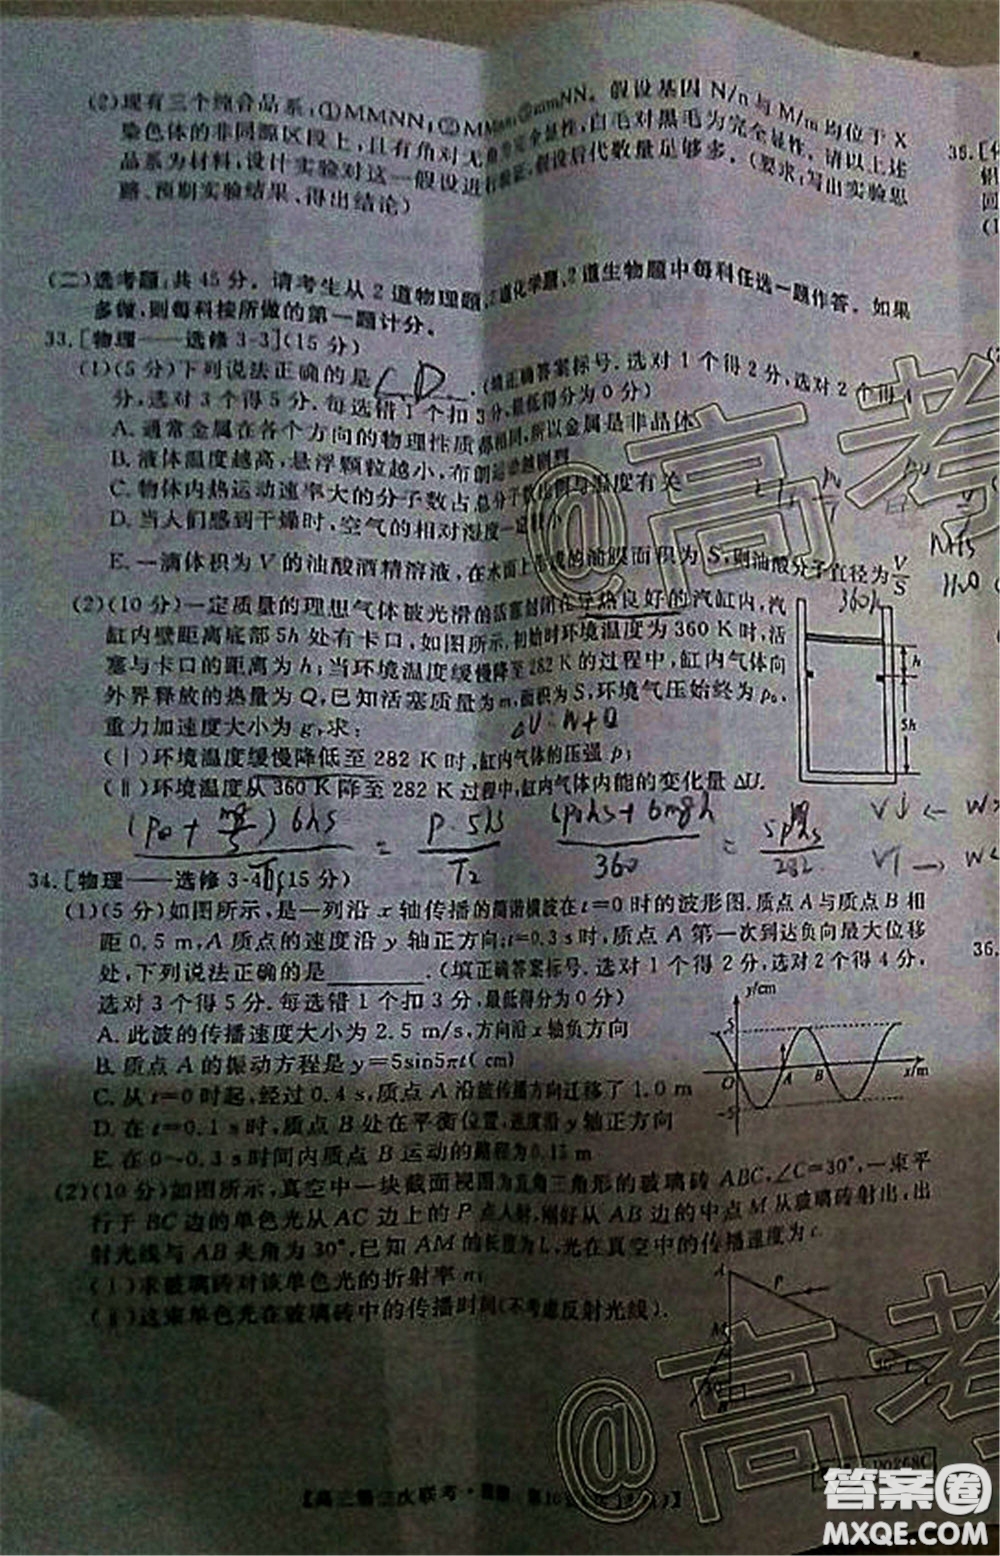 (2)现有三个纯合品系:①MMNN;②MMnn;③mmNN。假设基因 N/n 与 M/m 均位于 X
染色体的非同源区段上,且有角对无角为完全显性,白毛对黑毛为完全显性。请以上述
品系为材料,设计实验对这一假设进行验证,假设后代数量足够多。(要求:写出实验思
路、预期实验结果、得出结论)
(二)选考题:共 45 分。请考生从 2 道物理题、2 道化学题、2 道生物题中每科任选一题作答。如果
多做,则每科按所做的第一题计分。
33.[物理——选修 3-3](15 分)
(1)(5 分)下列说法正确的是 CD .(填正确答案标号.选对 1 个得 2 分,选对 2 个得 4
分,选对 3 个得 5 分.每选错 1 个扣 3 分,最低得分为 0 分)
A.通常金属在各个方向的物理性质都相同,所以金属是非晶体
B.液体温度越高,悬浮颗粒越小,布朗运动越剧烈
C.物体内热运动速率大的分子数占总分子数比例与温度有关
D.当人们感到干燥时,空气的相对湿度一定较小
E.一滴体积为 V 的油酸酒精溶液,在水面上形成的油膜面积为 S,则油酸分子直径为 V/S
(2)(10 分)一定质量的理想气体被光滑的活塞封闭在导热良好的汽缸内,汽
缸内壁距离底部 5h 处有卡口,如图所示.初始时环境温度为 360 K 时,活
塞与卡口的距离为 h;当环境温度缓慢降至 282 K 的过程中,缸内气体向
外界释放的热量为 Q,已知活塞质量为 m,面积为 S,环境气压始终为 p₀,
重力加速度大小为 g,求:
(Ⅰ)环境温度缓慢降低至 282 K 时,缸内气体的压强 p;
(Ⅱ)环境温度从 360 K 降至 282 K 过程中,缸内气体内能的变化量 ΔU.
360k
h
5h
ΔU=W+Q
34.[物理——选修 3-4](15 分)
(1)(5 分)如图所示,是一列沿 x 轴传播的简谐横波在 t=0 时的波形图.质点 A 与质点 B 相
距 0.5 m,A 质点的速度沿 y 轴正方向;t=0.3 s 时,质点 A 第一次到达负向最大位移
处,下列说法正确的是 .(填正确答案标号.选对 1 个得 2 分,选对 2 个得 4 分,
选对 3 个得 5 分.每选错 1 个扣 3 分,最低得分为 0 分)
A.此波的传播速度大小为 2.5 m/s,方向沿 x 轴负方向
B.质点 A 的振动方程是 y=5sin5πt(cm)
C.从 t=0 时起,经过 0.4 s,质点 A 沿波传播方向迁移了 1.0 m
D.在 t=0.1 s 时,质点 B 处在平衡位置,速度沿 y 轴正方向
E.在 0~0.3 s 时间内质点 B 运动的路程为 0.15 m
y/cm
5
O
A
B
x/m
-5
(2)(10 分)如图所示,真空中一块截面视图为直角三角形的玻璃砖 ABC,∠C=30°,一束平
行于 BC 边的单色光从 AC 边上的 P 点入射,刚好从 AB 边的中点 M 从玻璃砖射出,出
射光线与 AB 夹角为 30°,已知 AM 的长度为 L,光在真空中的传播速度为 c.
(Ⅰ)求玻璃砖对该单色光的折射率 n;
(Ⅱ)这束单色光在玻璃砖中的传播时间(不考虑反射光线).
A
P
M
B
30°
C
35.[化
36.
@高考
@高考
答案圈
MXQE.COM